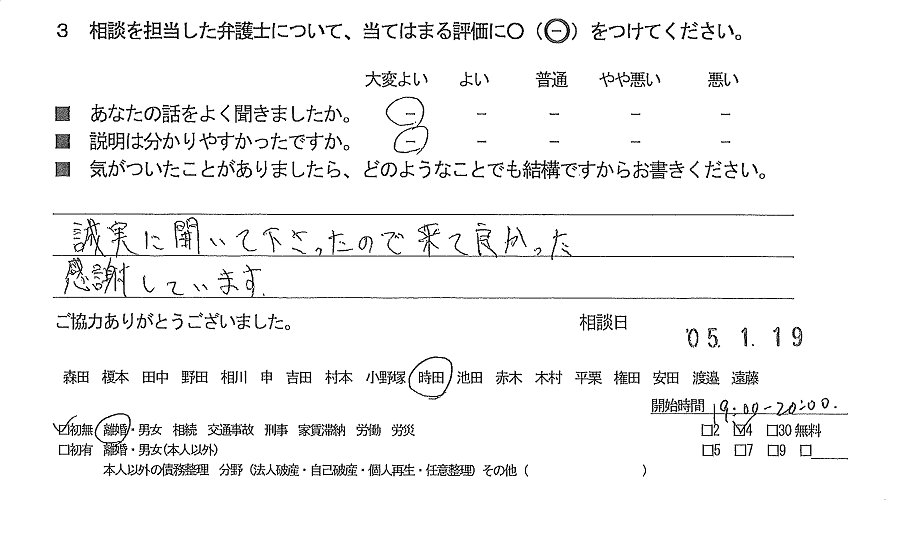 3 相談を担当した弁護士について、当てはまる評価に○(⊖)をつけてください。
大変よい よい 普通 やや悪い 悪い
■ あなたの話をよく聞きましたか。 − − − − −
■ 説明は分かりやすかったですか。 − − − − −
■ 気がついたことがありましたら、どのようなことでも結構ですからお書きください。
誠実に聞いて下さったので来て良かった
感謝しています.
ご協力ありがとうございました。 相談日 '05. 1. 19
森田 榎本 田中 野田 相川 申 吉田 村本 小野塚 時田 池田 赤木 木村 平栗 権田 安田 渡邉 遠藤
開始時間 19:00-20:00.
☑初無 離婚・男女 相続 交通事故 刑事 家賃滞納 労働 労災 □2 ☑4 □30 無料
□初有 離婚・男女(本人以外) □5 □7 □9 □
本人以外の債務整理 分野(法人破産・自己破産・個人再生・任意整理)その他( )